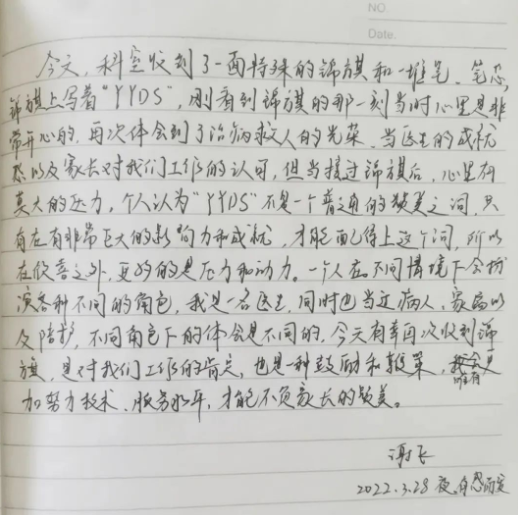 NO
Date.
今天，科室收到了一面特殊的锦旗和一堆笔、笔芯，
锦旗上写着“YYDS”，刚看到锦旗的那一刻当时心里是非
常开心的，再次体会到了治病救人的光荣、当医生的成就
感以及家长对我们工作的认可，但当接过锦旗后，心里有
莫大的压力，个人认为“YYDS”不是一个普通的赞美之词，只
有在有非常巨大的影响力和成就，才能配得上这个词，所以
在惊喜之外，更多的是压力和动力。一个人在不同情境下会扮
演各种不同的角色，我是一名医生，同时也当过病人、家属以
及陪护，不同角色下的体会是不同的，今天有幸再次收到锦
旗，是对我们工作的肯定，也是一种鼓励和鞭策，唯有更
加努力技术、服务水平，才能不负家长的赞美。
2022.3.28 夜，有感而发